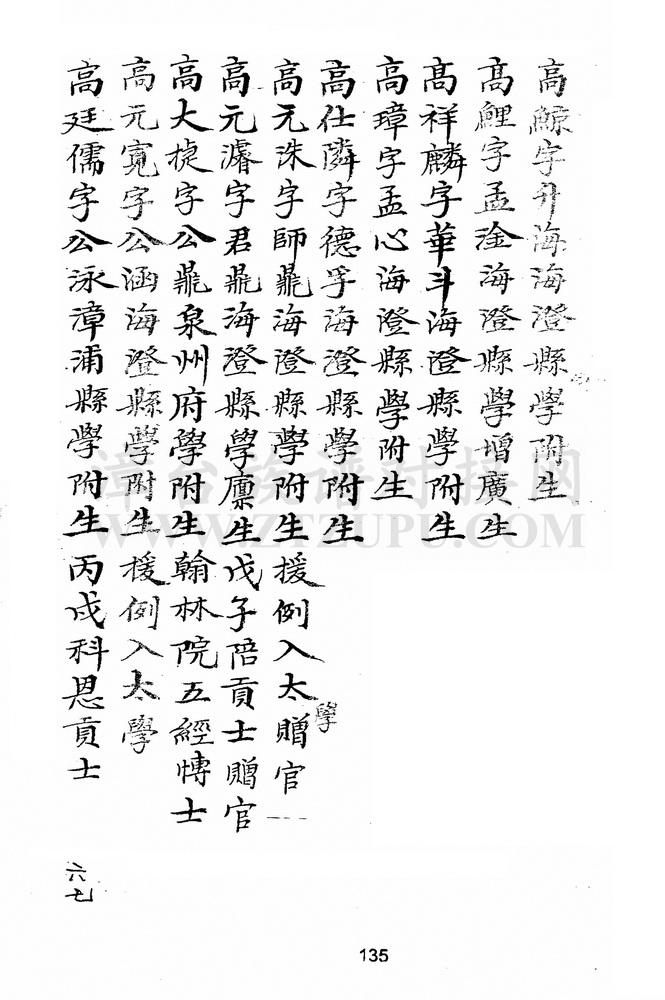 高鯨字升海海澄縣學附生
高鯉字孟淦海澄縣學增廣生
高祥麟字華斗海澄縣學附生
高璋字孟心海澄縣學附生
高仕隣字德孚海澄縣學附生
高元洙字師鼎海澄縣學附生援例入太學贈官
高元濬字君鼎海澄縣學廩生戊子陪貢士贈官
高大捷字公鼎泉州府學附生翰林院五經博士
高元寬字公涵海澄縣學附生援例入太學
高廷儒字公泳漳浦縣學附生丙戌科恩貢士
六七
135
漳台族谱对接网
WWW.ZTZUPU.COM